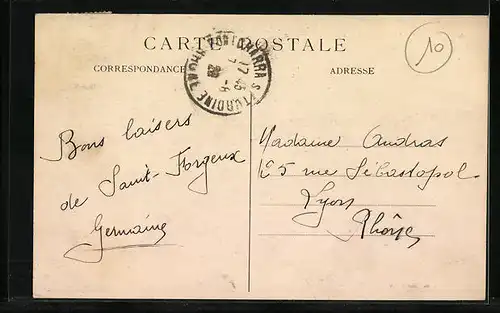 CARTE POSTALE
CORRESPONDANCE
ADRESSE
10
PONTCHARRA S/TURDINE RHONE
17 45
7 - 6
28
Bons baisers
de Saint-Forgeux
Germaine
Madame Andras
25 rue Sébastopol
Lyon
Rhône